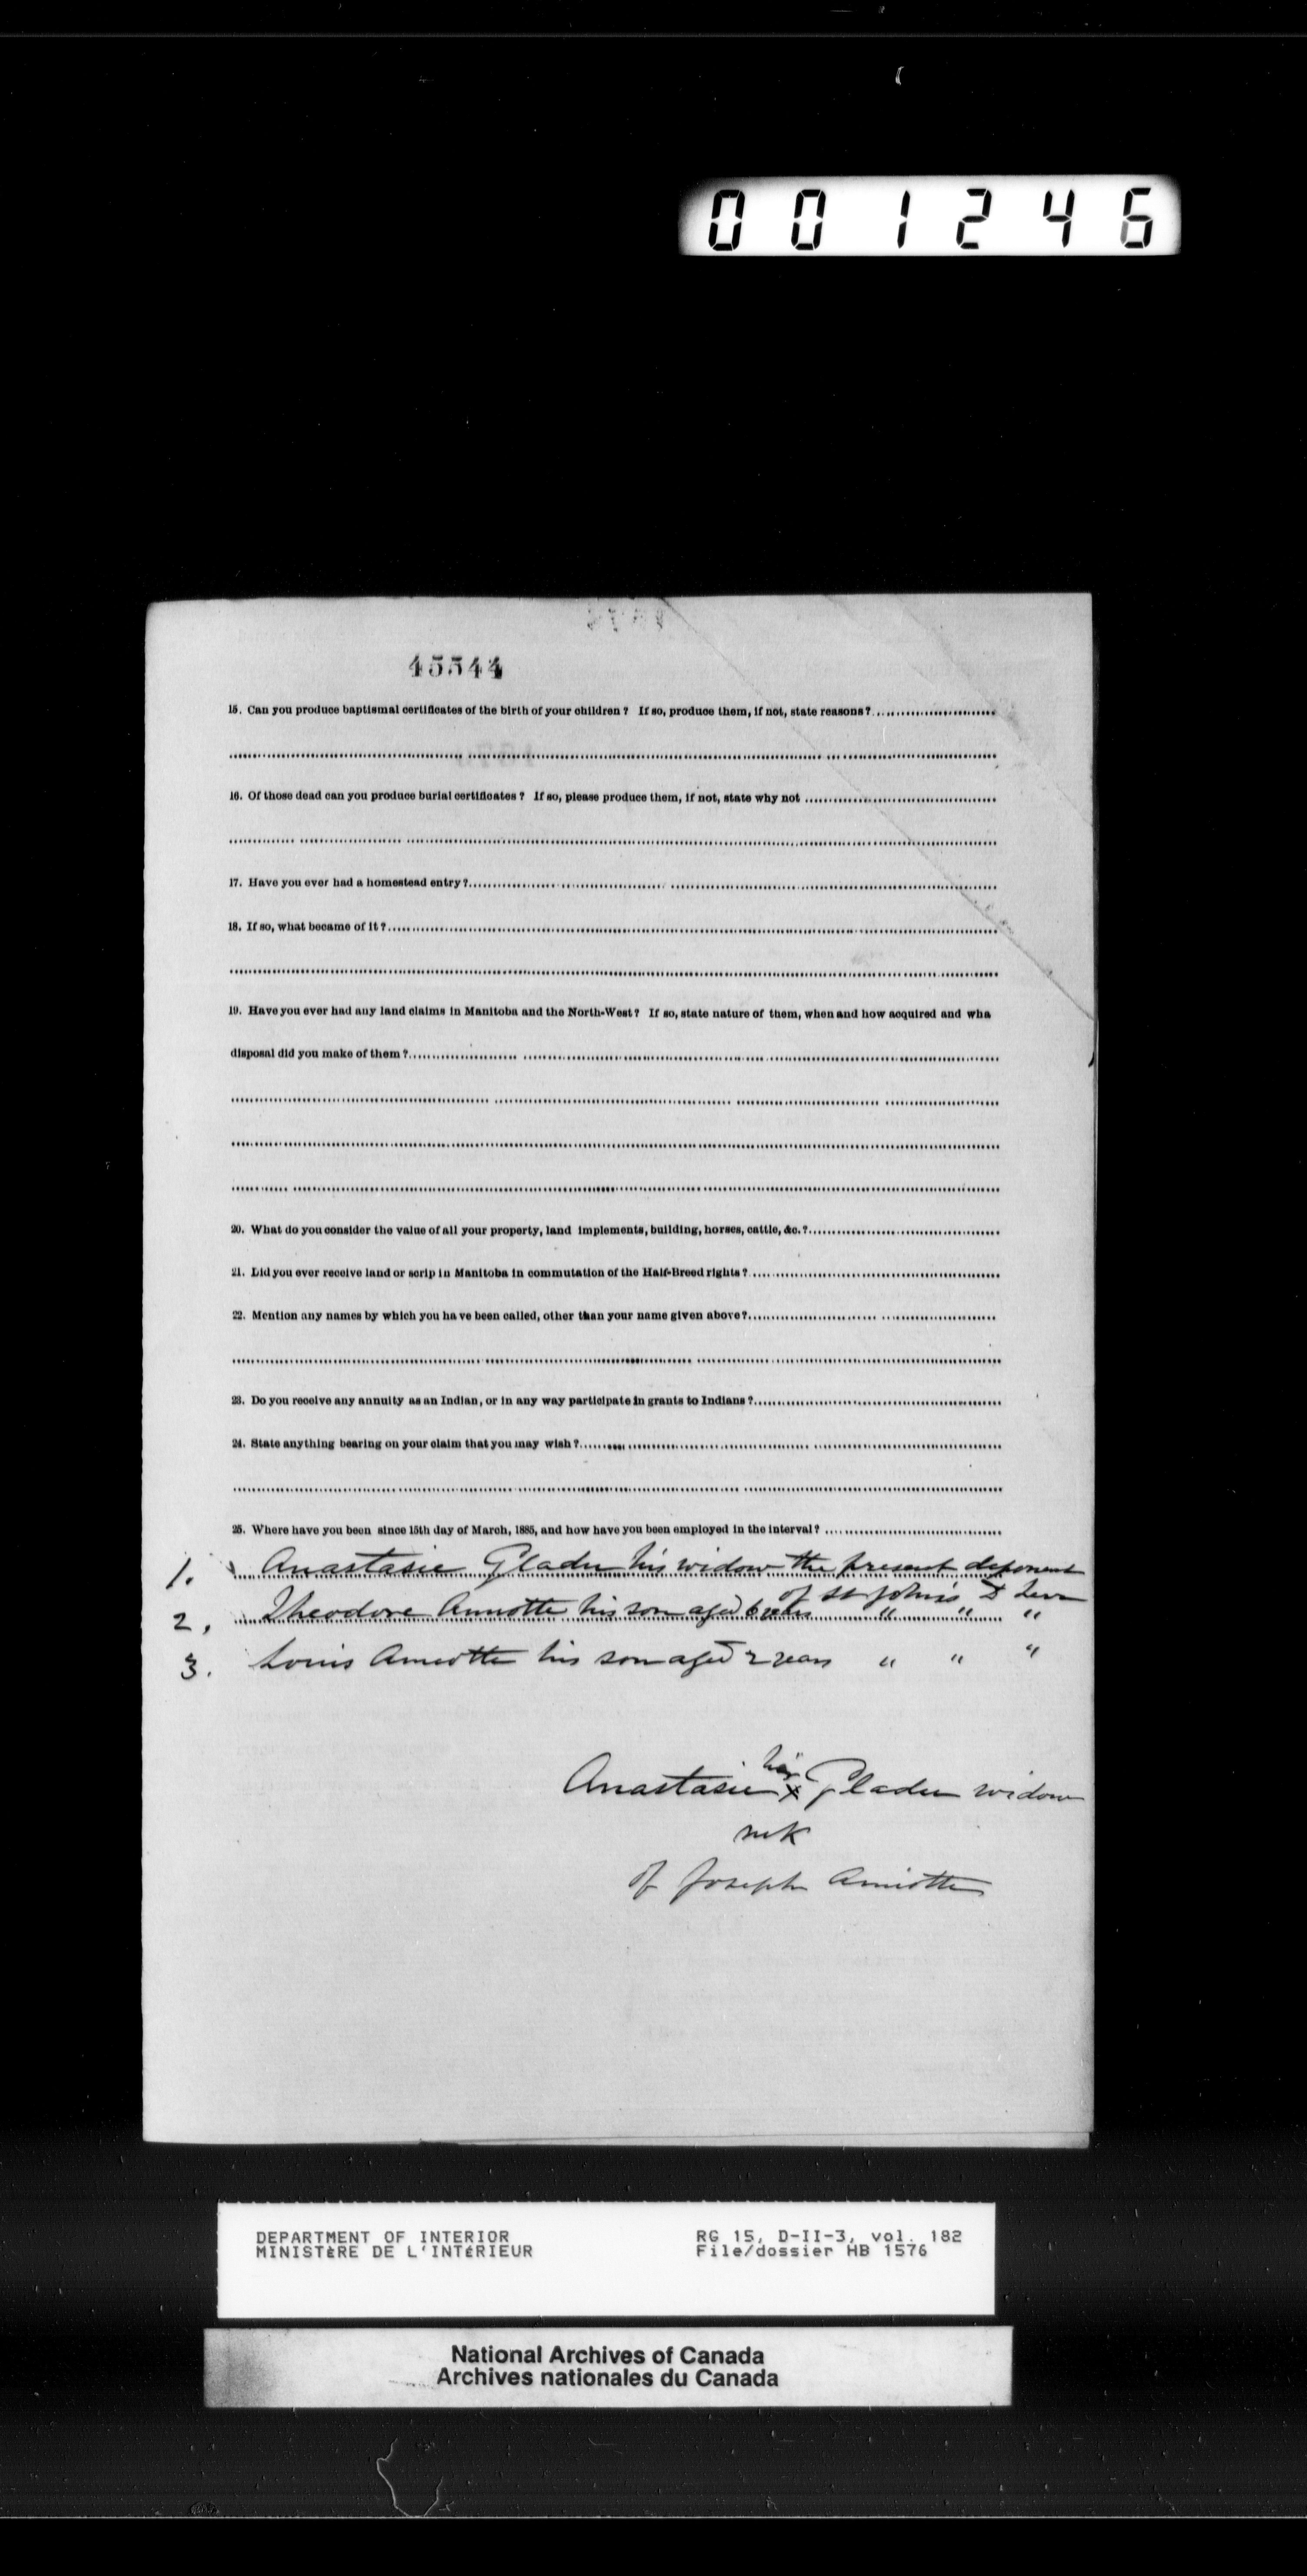 001246
45544
15. Can you produce baptismal certificates of the birth of your children? If so, produce them, if not, state reasons?
16. Of those dead can you produce burial certificates? If so, please produce them, if not, state why not
17. Have you ever had a homestead entry?
18. If so, what became of it?
19. Have you ever had any land claims in Manitoba and the North-West? If so, state nature of them, when and how acquired and wha
disposal did you make of them?
20. What do you consider the value of all your property, land implements, building, horses, cattle, &c.?
21. Did you ever receive land or scrip in Manitoba in commutation of the Half-Breed rights?
22. Mention any names by which you have been called, other than your name given above?
23. Do you receive any annuity as an Indian, or in any way participate in grants to Indians?
24. State anything bearing on your claim that you may wish?
25. Where have you been since 15th day of March, 1885, and how have you been employed in the interval?
1. Anastasie Gladu his widow the present deponent
of St John's
2. Theodore Amiotte his son aged 6 " " "
3. Louis Amiotte his son aged 2 years " " "
her
Anastasie x Gladu widow
mk
of Joseph Amiotte
DEPARTMENT OF INTERIOR RG 15, D-II-3, vol. 182
MINISTÈRE DE L'INTÉRIEUR File/dossier HB 1576
National Archives of Canada
Archives nationales du Canada